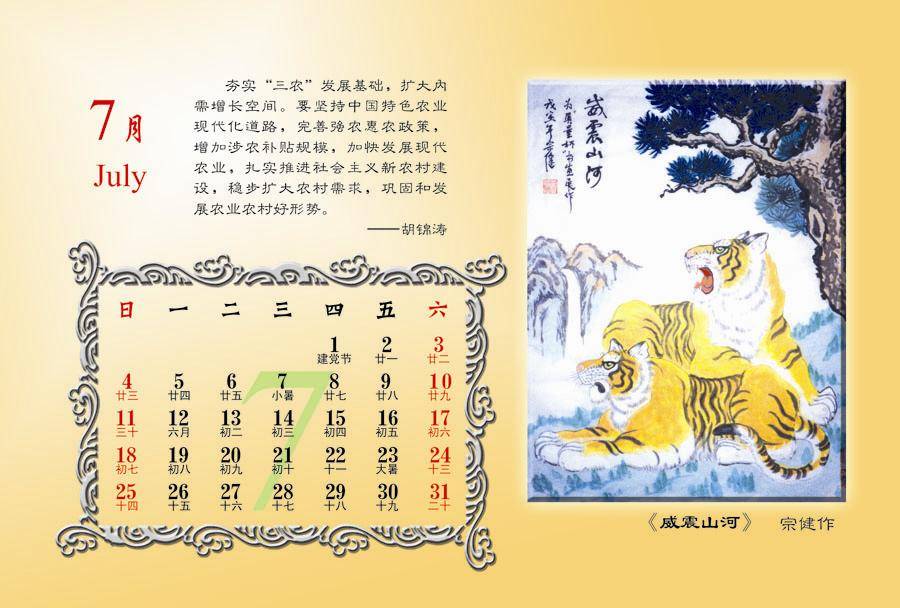 7月
July
夯实“三农”发展基础，扩大内
需增长空间。要坚持中国特色农业
现代化道路，完善强农惠农政策，
增加涉农补贴规模，加快发展现代
农业，扎实推进社会主义新农村建
设，稳步扩大农村需求，巩固和发
展农业农村好形势。
——胡锦涛
日 一 二 三 四 五 六
1 2 3
建党节 廿一 廿二
4 5 6 7 8 9 10
廿三 廿四 廿五 小暑 廿七 廿八 廿九
11 12 13 14 15 16 17
三十 六月 初二 初三 初四 初五 初六
18 19 20 21 22 23 24
初七 初八 初九 初十 十一 大暑 十三
25 26 27 28 29 30 31
十四 十五 十六 十七 十八 十九 二十
7
威震山河
戊寅年宗健
《威震山河》 宗健作